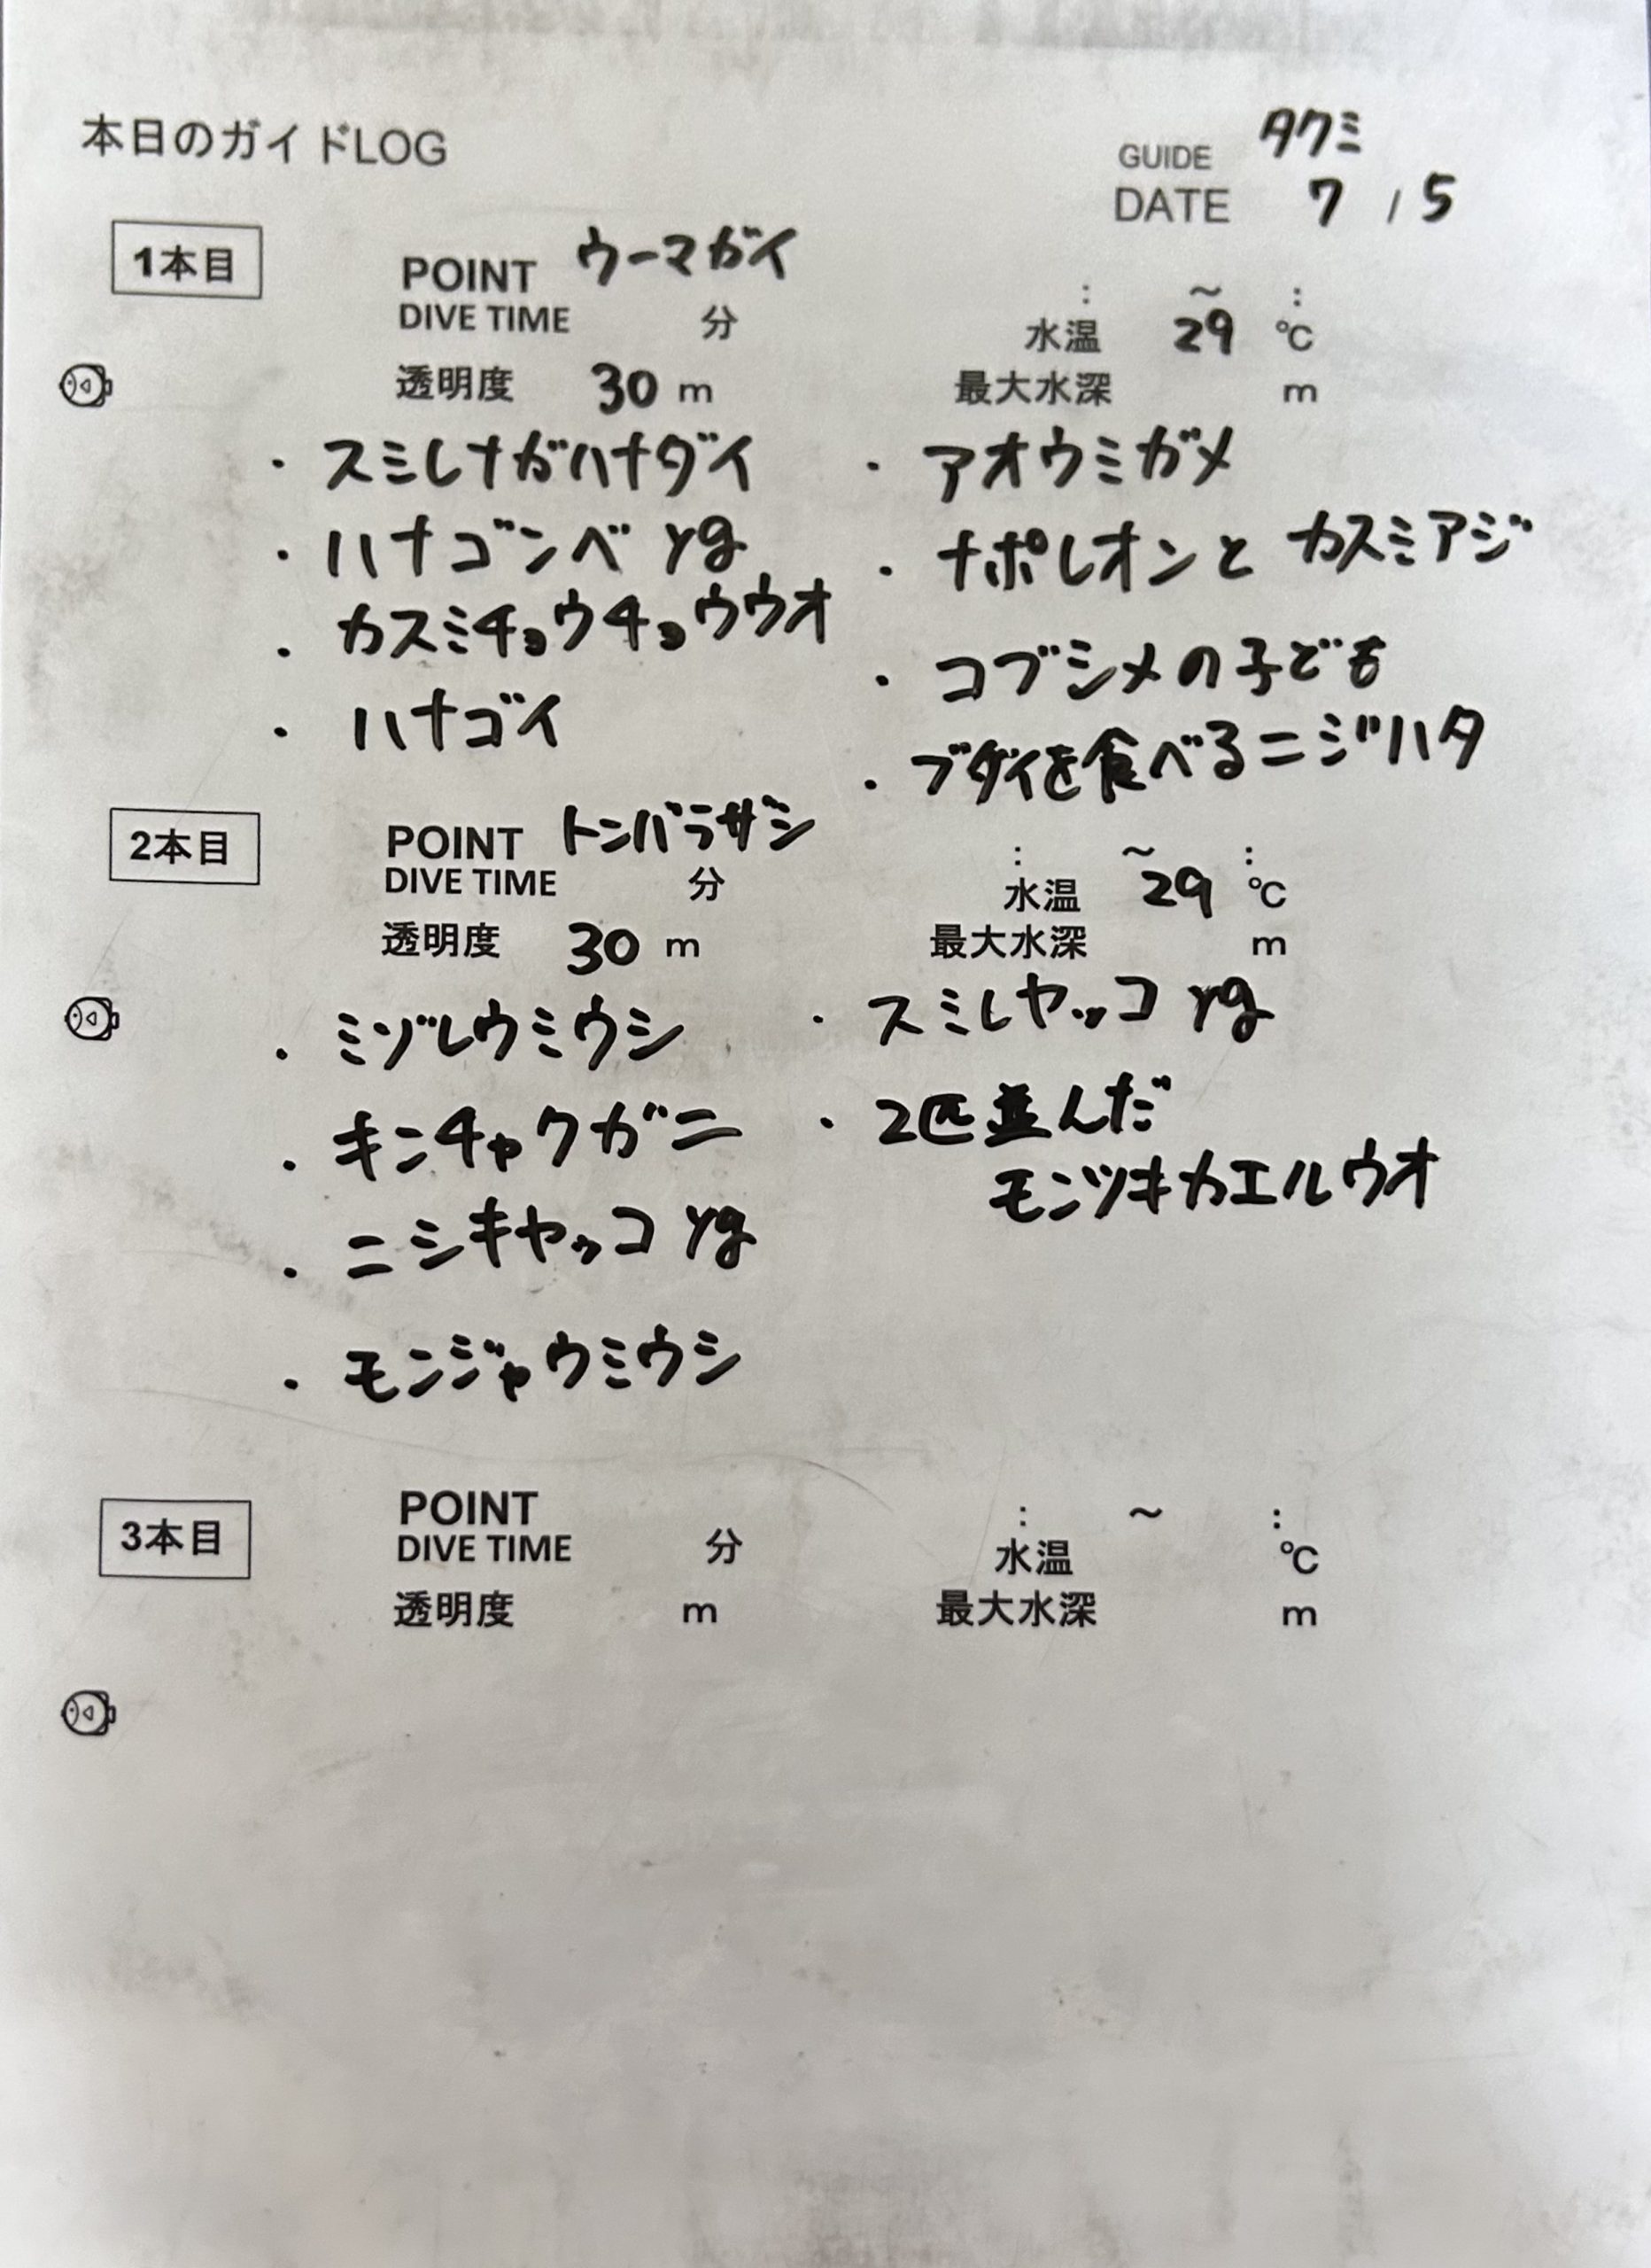 本日のガイドLOG
GUIDE タクミ
DATE 7 / 5
1本目
POINT ウーマガイ
: ～ :
DIVE TIME 分
水温 29 ℃
透明度 30 m
最大水深 m
・スミレナガハナダイ
・ハナゴンベ yg
・カスミチョウチョウウオ
・ハナゴイ
・アオウミガメ
・ナポレオンと カスミアジ
・コブシメの子ども
・ブダイを食べるニジハタ
2本目
POINT トンバラザシ
: ～ :
DIVE TIME 分
水温 29 ℃
透明度 30 m
最大水深 m
・ミゾレウミウシ
・キンチャクガニ
・ニシキヤッコ yg
・モンジャウミウシ
・スミレヤッコ yg
・2匹並んだ
モンツキカエルウオ
3本目
POINT
: ～ :
DIVE TIME 分
水温 ℃
透明度 m
最大水深 m